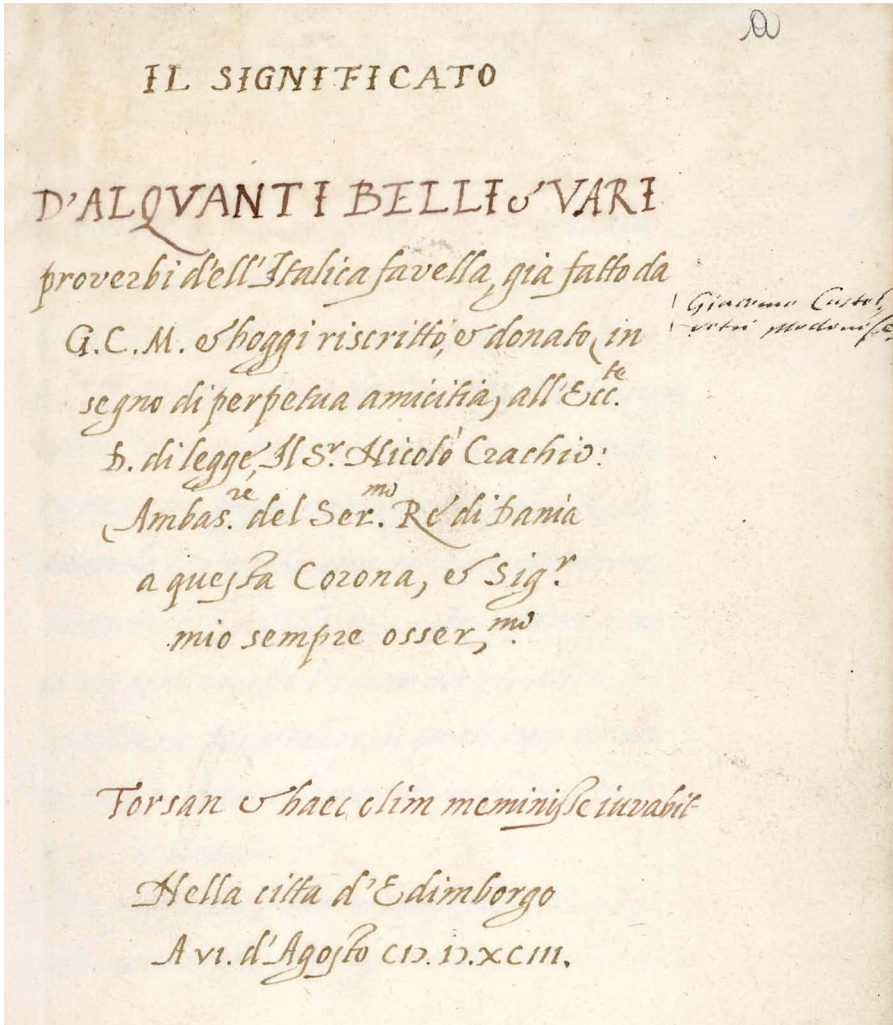 a
IL SIGNIFICATO
D'ALQVANTI BELLI & VARI
proverbi dell'Italica favella, già fatto da
G. C. M. & hoggi riscritto, & donato, in
segno di perpetua amicitia, all'Ecc.te
D. di legge, Il Sr. Nicolò Crachio:
Ambas.re del Ser.mo Rè di Dania
a questa Corona, & Sigr.
mio sempre osser.mo
Giacomo Castel
vetri modonese
Forsan & haec olim meminisse iuvabit
Nella citta d'Edimborgo
A VI. d'Agosto CIƆ.IƆ.XCIII.